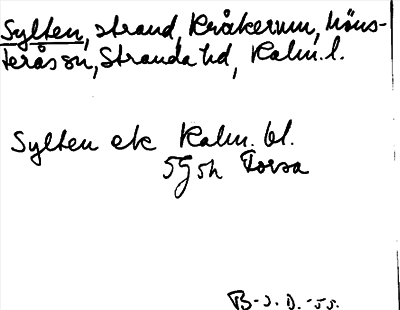 Sylten, strand, Kråkerum, Möns-
terås sn, Stranda hd, Kalm. l.
Sylten ek Kalm. bl.
5G5h Torsa
B-J. D. -55.